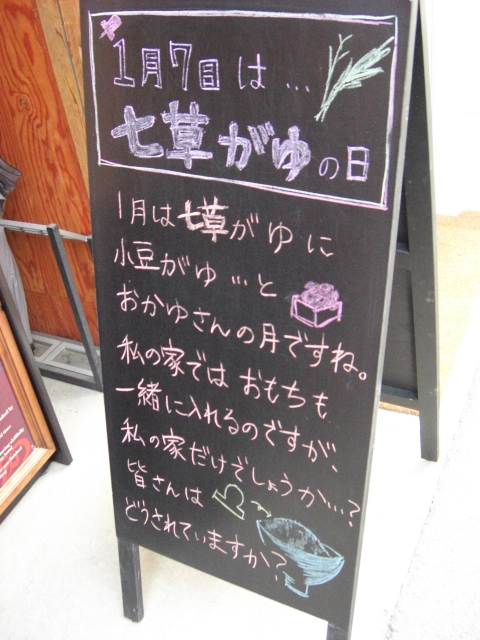 1月7日は…
七草がゆの日
1月は七草がゆに
小豆がゆ…と
おかゆさんの月ですね。
私の家では おもちも
一緒に入れるのですが、
私の家だけでしょうか…?
皆さんは
どうされていますか?